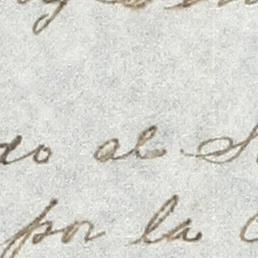 do al S
por la